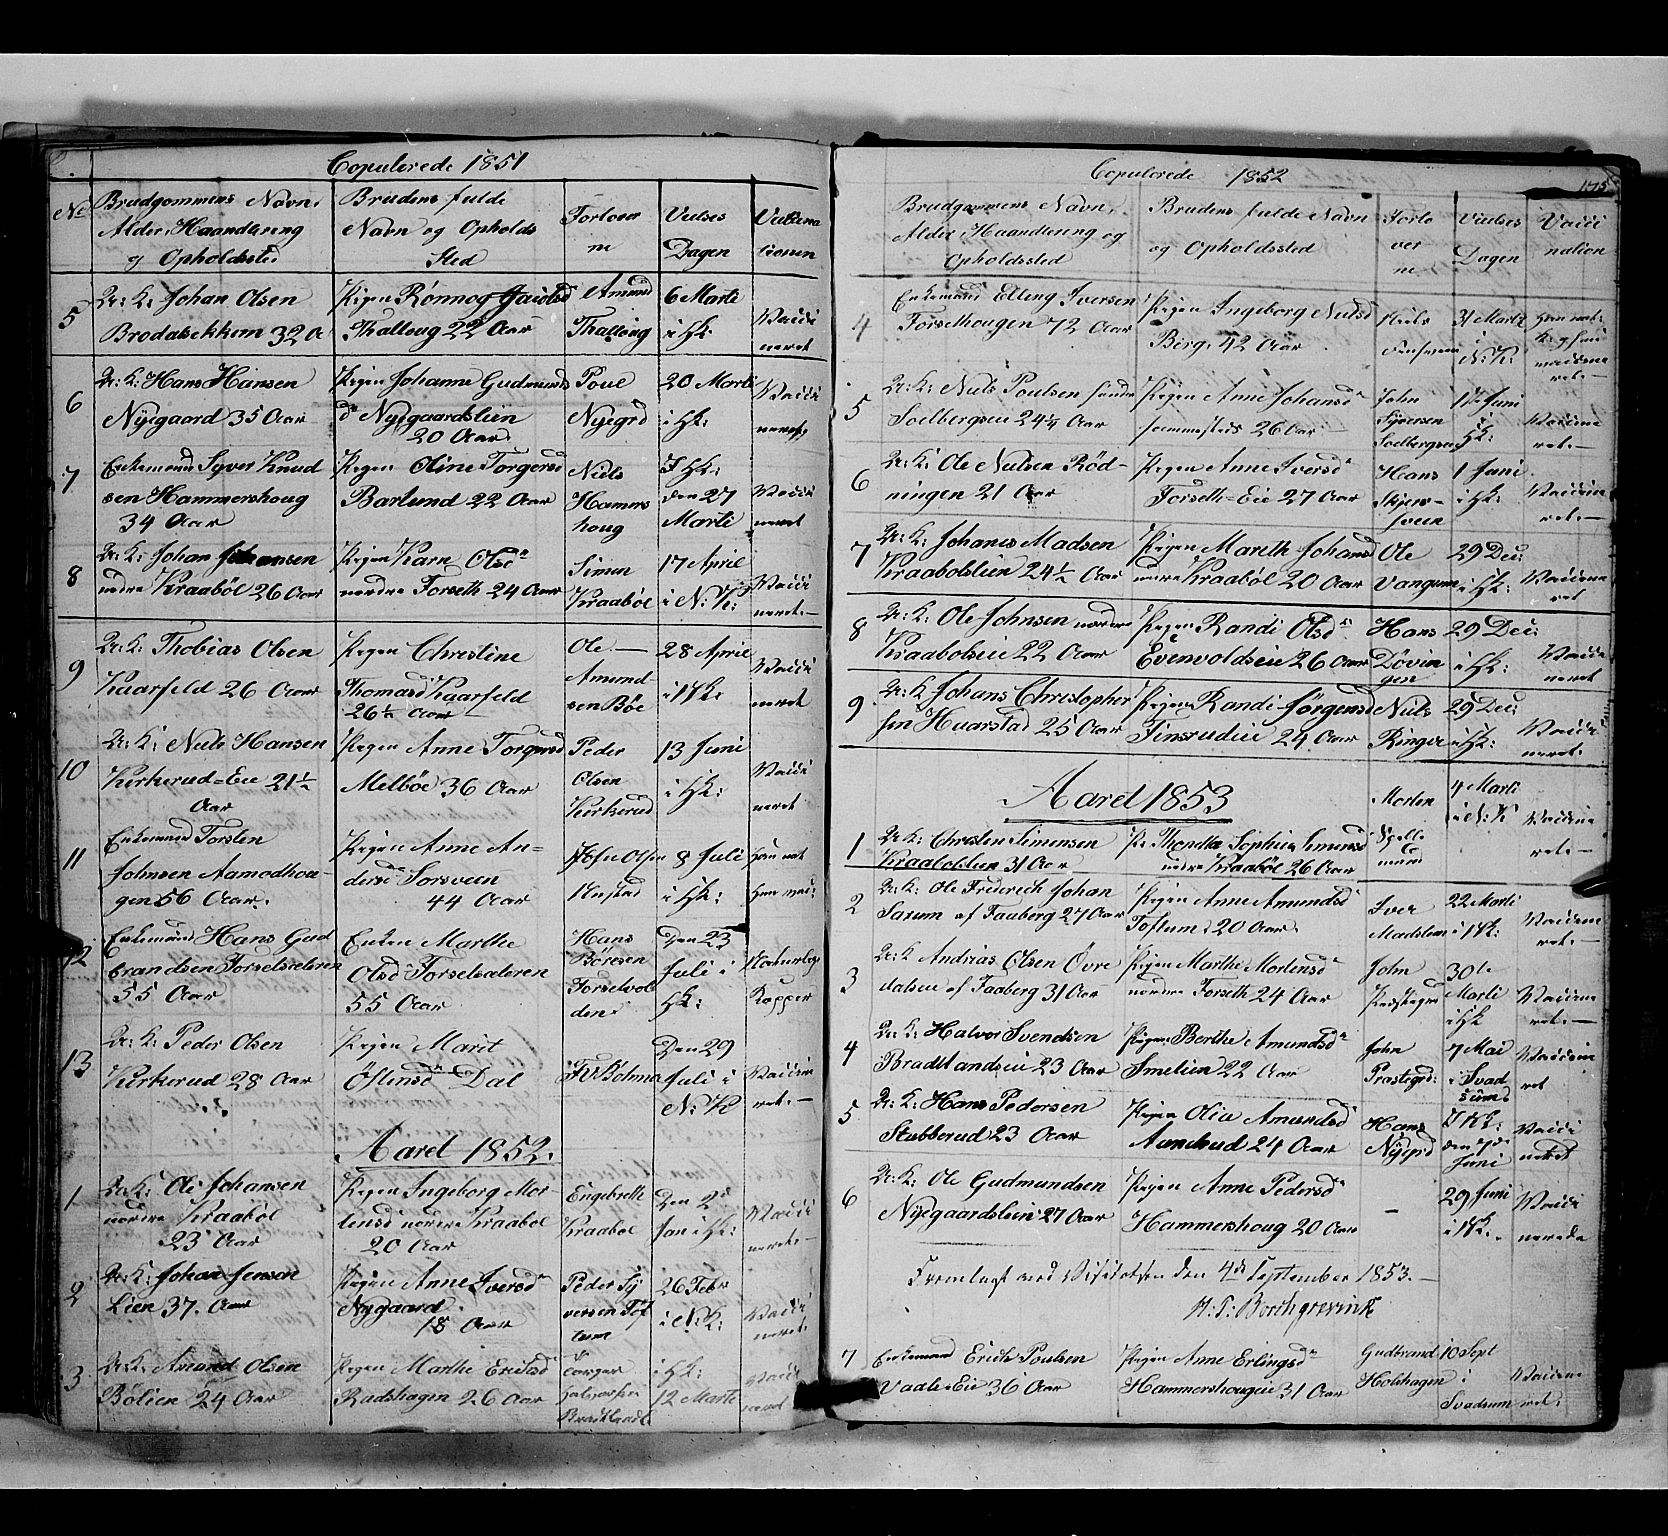 Copulerede 1851
No
Brudgommens Navn,
Alder, Haandtering
og Opholdssted
Brudens fulde
Navn og Opholds
Sted
Forlove
re
Vielses
Dagen
Vaccina
tionen
5
U: K: Johan Olsen
Brodalsekkern 32 A
Pigen Rønnog
Thalloug 22 Aar
Amund
Thalloug
6 Marti
i HK:
Vacci
neret
6
U: K: Hans Hansen
Nyegaard 35 Aar
Pigen Johanne Gudmunds
dr Nyegaardslein
20 Aar.
Poul
Nyegrd
20 Marti
i HK:
Vacci
neret
7
Enkemand Syver Knud
sen Hammershoug
34 Aar
Pigen Oline Torgersd
Barlund 22 Aar
Niels
Hamers
houg
I HK:
den 27
Marti
Vacci
neret
8
U: K: Johan Johansen
nedre Kraabøl 26 Aar
Pigen Karn Olsdr
nordre Forseth 24 Aar
Simen
Kraabøl
17 April
i N: K:
Vacci
neret.—
9
U: K: Thobias Olsen
Kaarfeld 26 Aar
Pigen Christine
Thomasd Kaarfeld
26½ Aar
Ole —
Amund
sen Bøe
28 April
i HK:
Vacci
neret
10
U: K: Niels Hansen
Kirkerud=Eie 21½
Aar
Pigen Anne Torgersd
Melbøe 36 Aar
Peder
Olsen
Kirkerud
13 Juni
i HK:
Vacci
neret
11
Enkemand Torsten
Johnsen Aamodhou-
gen 56 Aar.
Pigen Anne An-
dersd Sorsveen
44 Aar
John Olsen
8 Juli
i HK:
12
Enkemand Hans Gud
brandsen Forsetsæteren
55 Aar
Enken Marthe
Olsd Forsetsæteren
55 Aar
Hans
Børesen
Forsetvol
den
Den 23
Juli i
HK:
Naturlige
Kopper
13
U: K: Peder Olsen
Kirkerud 28 Aar
Pigen Marit
Østensd Dal
Den 29
Juli i
N: K
Vaccin
ret.—
Aaret 1852.
1
U: K: Ole Johansen
nordre Kraabøl
23 Aar
Pigen Ingeborg Mor-
tensd nordre Kraabøl
20 Aar
Engebreth
Kraabøl
Den 2d
Jan i HK:
Vacci
neret.—
2
U: K: Johan Jensen
Lien 37. Aar
Pigen Anne Iversdr
Nygaard.
18 Aar
Peder Sy
versen Tof
tum
26 Febr
i N: K:
Vacci
neret.
3
U: K: Amund Olsen
Bølien 24 Aar
Pigen Marthe Ericksd
Radshagen 26 Aar
i HK:
12 Marti
Vacci
neret
Copulerede 1852
175
Brudgommens Navn,
Alder, Haandtering og
Opholdssted
Brudens fulde Navn
og Opholdssted
Forlo
ver
ne
Vielses
Dagen
Vacci
nation
4
Enkemand Elling Iversen
Forsethougen 72 Aar
Pigen Ingeborg Nielsd
Berg. 42 Aar
Niels
31 Marti
i
N: K:
5
U: K: Niels Poulsen
Soelbergseie 24¼ Aar
Pigen Anne Johansdr
26 Aar
John
Syversen
Soelbergseie
17 Juni
i HK:
Vaccine
ret.—
6
U: K: Ole Nielsen Rød-
ningen 21 Aar
Pigen Anne Iversdr
Forseth=Eie 27 Aar
Hans
Skjær-
sveen
1 Juni
i HK:
Vaccine
ret.—
7
U: K: Johanes Madsen
Kraabolslien 24½ Aar
Pigen Marith Johansd
nedre Kraabøl 20 Aar
Ole
Vangum
29 Dec:
i HK:
Vaccine
ret
8
U: K: Ole Johnsen nordre
Kraabolseie 22 Aar
Pigen Randi Olsdr
Evenvoldseie 26 Aar
Hans
Døvin
gen
29 Dec:
i HK:
Vacci
neret
9
U: K Johans Christopher
sen Huarstad 25 Aar
Pigen Randi Jørgensd
Finsrudeie 24 Aar
Niels
Ringen
29 Dec:
i HK:
Vacci
neret.
Aaret 1853
1
U: K: Christen Simensen
Kraabolslien 31 Aar
Pi: Thondta Sophia Simensd
nedre Kraabøl 26 Aar
Morten
4 Marti
i N: K
Vaccine
ret.—
2
U: K: Ole Frederich Johan
Sarum af Faaberg 27 Aar
Pigen Anne Amundsd
Toftum. 20 Aar.
Iver
Madslien
22 Marti
i HK:
Vaccine
ret.—
3
U: K Andrias Olsen Øvre
dalsen af Faaberg 31 Aar
Pigen Marthe Mortensdr
nordre Forseth 24 Aar
John
30te
Marti
i HK
Vaccine
ret.—
4
U: K: Halvor Svendsen
Bradtlandseie 23 Aar
Pigen Berthe Amundsdr
Smelien 22 Aar
John
Prastegrd:
7 Mai
i Svad
sum
Vaccin
ret
5
U: K: Hans Pedersen
Stubberud 23 Aar
Pigen Olia Amundsd
Aunerud 24 Aar
Hans
Nyegrd
I HK:
Juni
Vacci
neret
6
U: K: Ole Gudmundsen
Nyegaardslien 27 Aar
Pigen Anne Pedersdr
Hammershoug 20 Aar
—
29 Juni
i HK.
Vacci
nerede
Fremlagt ved Visitatsen den 4de September 1853.—
H: P: Borchgrevink
7
Enkemand Erich Poulsen
Vaale=Eie 36 Aar
Pigen Anne Erlingsdr
Hammershougeie 31 Aar
Gudbrand
Holshagen
10 Sept
i
Svadsum
Vaccine
ret.